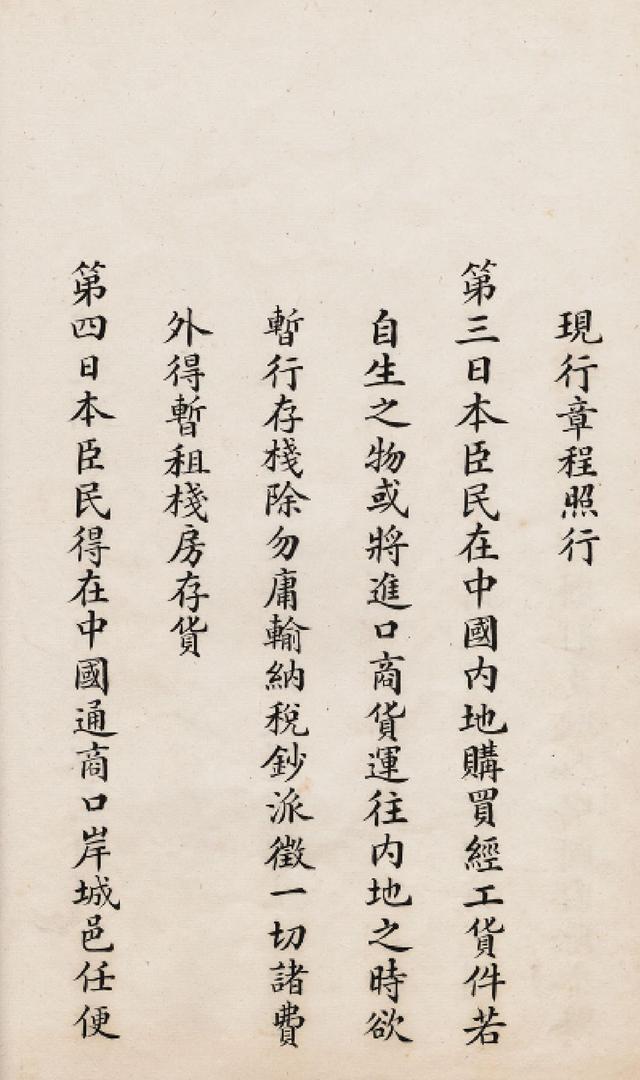 現行章程照行
第三日本臣民在中國內地購買經工貨件若
自生之物或將進口商貨運往內地之時欲
暫行存棧除勿庸輸納稅鈔派徵一切諸費
外得暫租棧房存貨
第四日本臣民得在中國通商口岸城邑任便